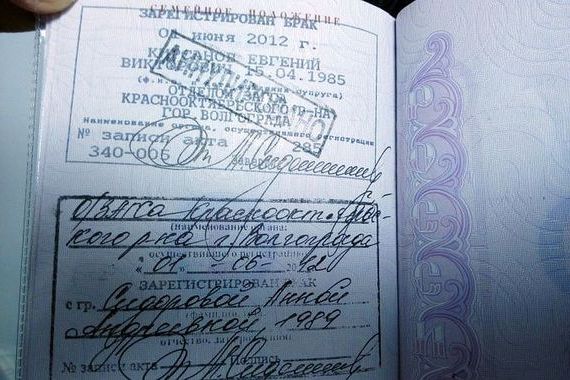 СЕМЕЙНОЕ ПОЛОЖЕНИЕ
ЗАРЕГИСТРИРОВАН БРАК
июня 2012 г.
ЕВГЕНИЙ
15.04.1985
ОТДЕЛОМ ЗАГСА
КРАСНООКТЯБРЬСКОГО Р-НА
ГОР. ВОЛГОГРАДА
наименование органа, осуществившего регистрацию
№ записи акта 285
340-006
О/ЗАГСа Краснооктябрьс-
кого р-на г. Волгограда
(наименование органа,
осуществившего регистрацию)
« 01 » 06
ЗАРЕГИСТРИРОВАН БРАК
с гр. Сидоровой Анной
Андреевной, 1989
отчество, дата рождения)
№ записи акта Подпись